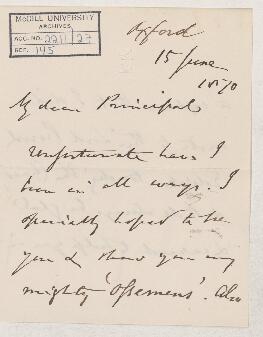 McGILL UNIVERSITY
ARCHIVES
ACC. NO. 2211 / 27
REF. 145
Oxford
15 June
1870
My dear Principal
Unfortunate have I
been in all ways. I
specially hoped to see
you & show you my
mighty 'Ossemens'. Also